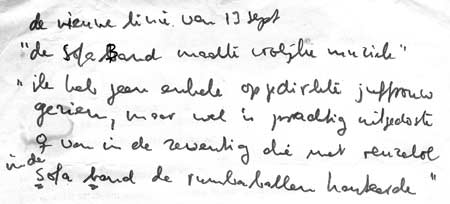 de nieuwe linie van 13 sept
"de Sofa Band maakte vrolijke muziek"
"ik heb geen enkele opgedirkte juffrouw
gezien, maar wel 'n prachtig uitgedoste
♀ van in de zeventig die met
in de Sofa band de rumbaballen hanteerde"